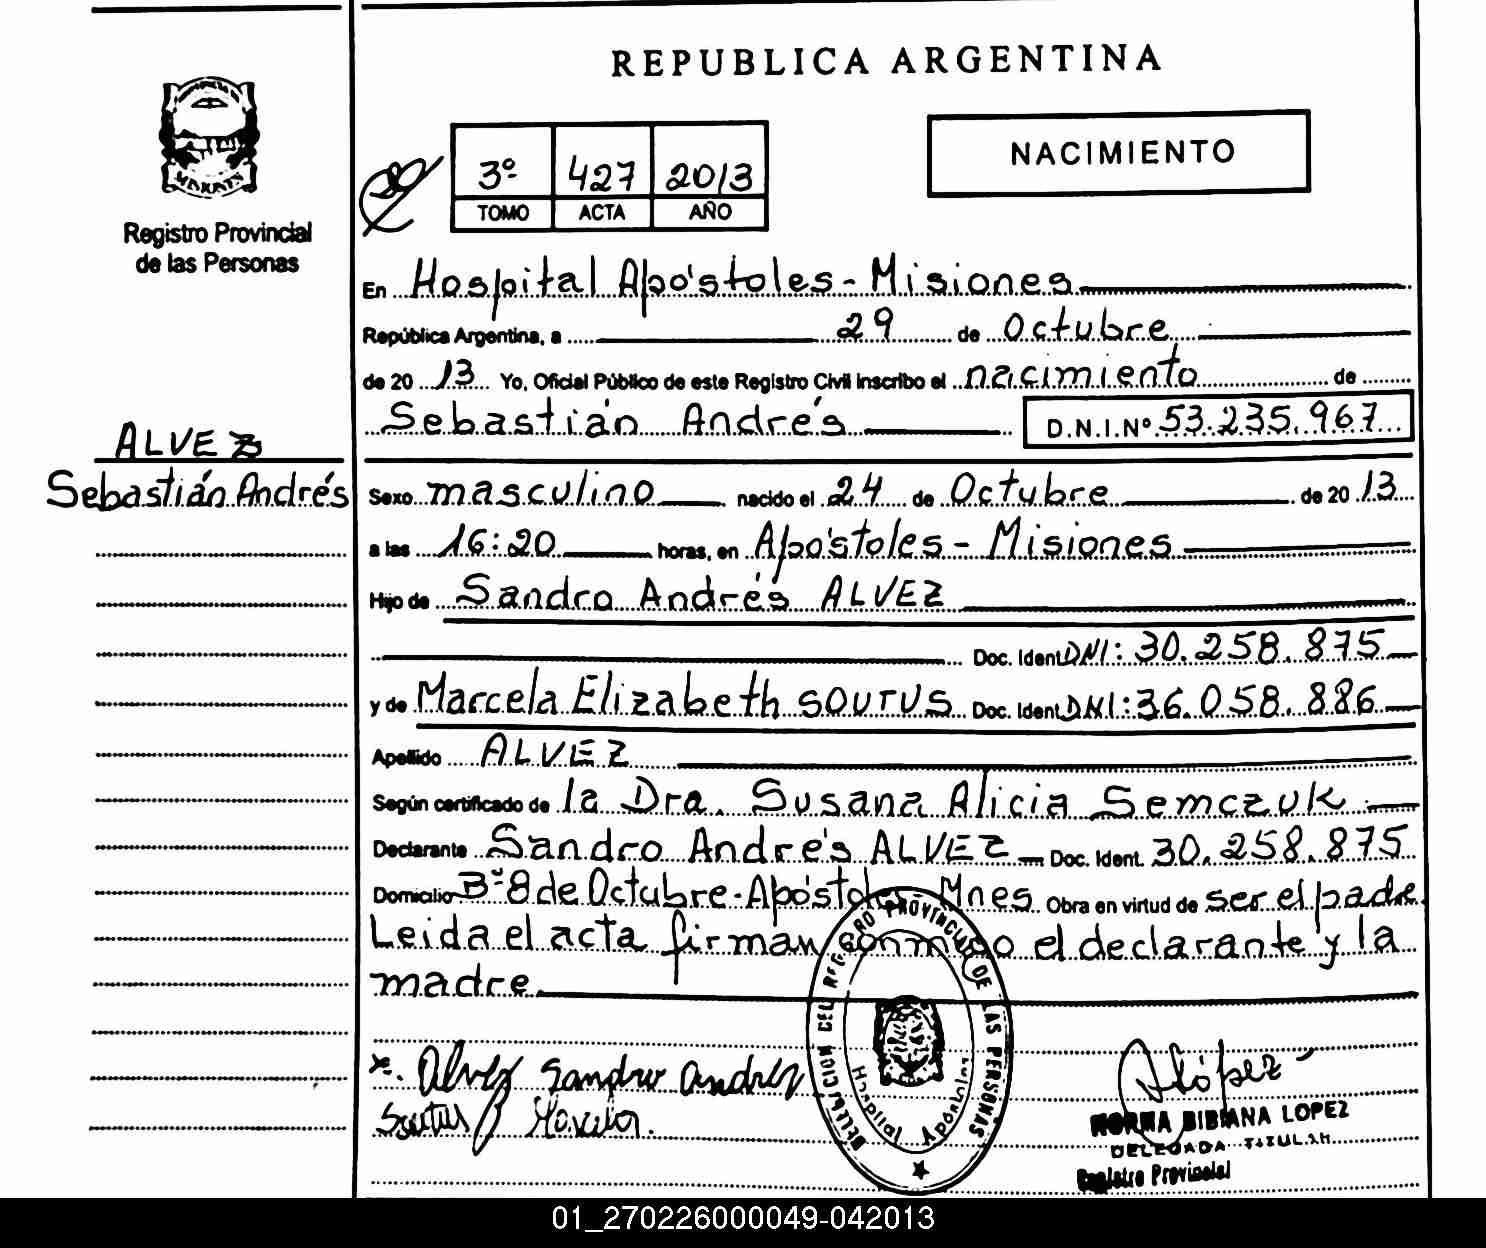 REPUBLICA ARGENTINA
MISIONES
Registro Provincial
de las Personas
3º 427 2013
TOMO ACTA AÑO
NACIMIENTO
En Hospital Apóstoles - Misiones
República Argentina, a 29 de Octubre
de 20 13 Yo, Oficial Público de este Registro Civil inscribo el nacimiento de
Sebastián Andrés D.N.I.Nº 53.235.967
ALVEZ
Sebastián Andrés
Sexo masculino nacido el 24 de Octubre de 20 13
a las 16:20 horas, en Apóstoles - Misiones
Hijo de Sandro Andrés ALVEZ
Doc. Ident DNI: 30.258.875
y de Marcela Elizabeth SOUTUS Doc. Ident DNI: 36.058.886
Apellido ALVEZ
Según certificado de la Dra. Susana Alicia Semczuk
Declarante Sandro Andrés ALVEZ Doc. Ident. 30.258.875
Domicilio Bº 8 de Octubre - Apóstoles - Mnes Obra en virtud de ser el padre.
Leida el acta firman conmigo el declarante y la
madre.
DELEGACION DEL REGISTRO PROVINCIAL DE LAS PERSONAS
Hospital Apóstoles
x. Alvez Sandro Andres
López
NORMA BIBIANA LOPEZ
DELEGADA TITULAR
Registro Provincial
01_270226000049-042013